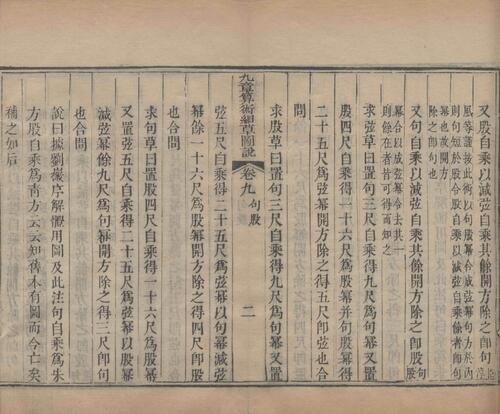 又股自乘以減弦自乘其餘開方除之即句臣淳
風等謹按此術以句股冪合成弦冪句方於內
則句短於股令股自乘以減弦自乘餘者即句
冪也故開方
除之即句也
又句自乘以減弦自乘其餘開方除之即股句股
冪合以成弦冪令去其一
則餘在者皆可得而知之
求弦草曰置句三尺自乘得九尺爲句冪又置
股四尺自乘得一十六尺爲股冪并句股冪得
二十五尺爲弦冪開方除之得五尺即弦也合
問
求股草曰置句三尺自乘得九尺爲句冪又置
九章算術細草圖說 卷九 句股 二
弦五尺自乘得二十五尺爲弦冪以句冪減弦
冪餘一十六尺爲股冪開方除之得四尺即股
也合問
求句草曰置股四尺自乘得一十六尺爲股冪
又置弦五尺自乘得二十五尺爲弦冪以股冪
減弦冪餘九尺爲句冪開方除之得三尺即句
也合問
說曰據劉徽序解體用圖及此法句自乘爲朱
方股自乘爲青方云云知舊本有圖而今亡矣
補之如后